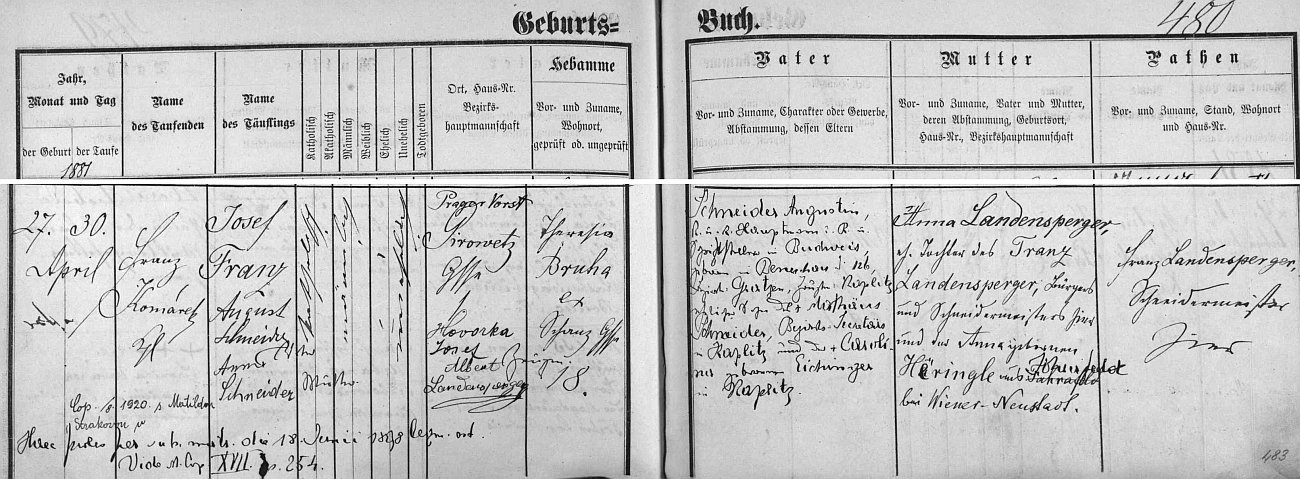 Geburts=
Buch.
480
Jahr,
Monat und Tag
der Geburt
der Taufe
1881
Name
des Taufenden
Name
des Täuflings
Katholisch
Akatholisch
Männlich
Weiblich
Ehelich
Unehelich
Todtgeboren
Ort, Haus-Nr.
Bezirks-
hauptmannschaft
Hebamme
Vor- und Zuname,
Wohnort,
geprüft od. ungeprüft
Vater
Vor- und Zuname, Charakter oder Gewerbe,
Abstammung, dessen Eltern
Mutter
Vor- und Zuname, Vater und Mutter,
deren Abstammung, Geburtsort,
Haus-Nr., Bezirkshauptmannschaft
Pathen
Vor- und Zuname, Stand, Wohnort
und Haus-Nr.
27. 30.
April
Franz
Komárek
Josef
Franz
August
Schneider
Anna
Schneider
Prager Vorst
Sirowetz
Gsse
1
Hovorka
Josef
Albert Zeugen
Landensperger
Theresia
Bruha
ex
Schanz Gsse
18.
Schneider Augustin,
K. u. k. Hauptmann i. R. u.
Schriftsteller in Budweis
geboren in
Gratzen, Kaplitz
Schneider, Bezirks-
in Kaplitz und der +
geboren Eichinger
in Kaplitz.
Anna Landensperger,
eh. Tochter des Franz
Landensperger, Bürgers
und Schneidermeisters hier
und der Anna gebornen
Häringle aus
bei Wiener-Neustadt.
Franz Landensperger,
Schneidermeister
hier
Cop. 1920. s Matildou
Strakovou
Hicce proles per sub. matr. die 18. Junii 1888
Vide M. Cop XVII. p. 254.
483